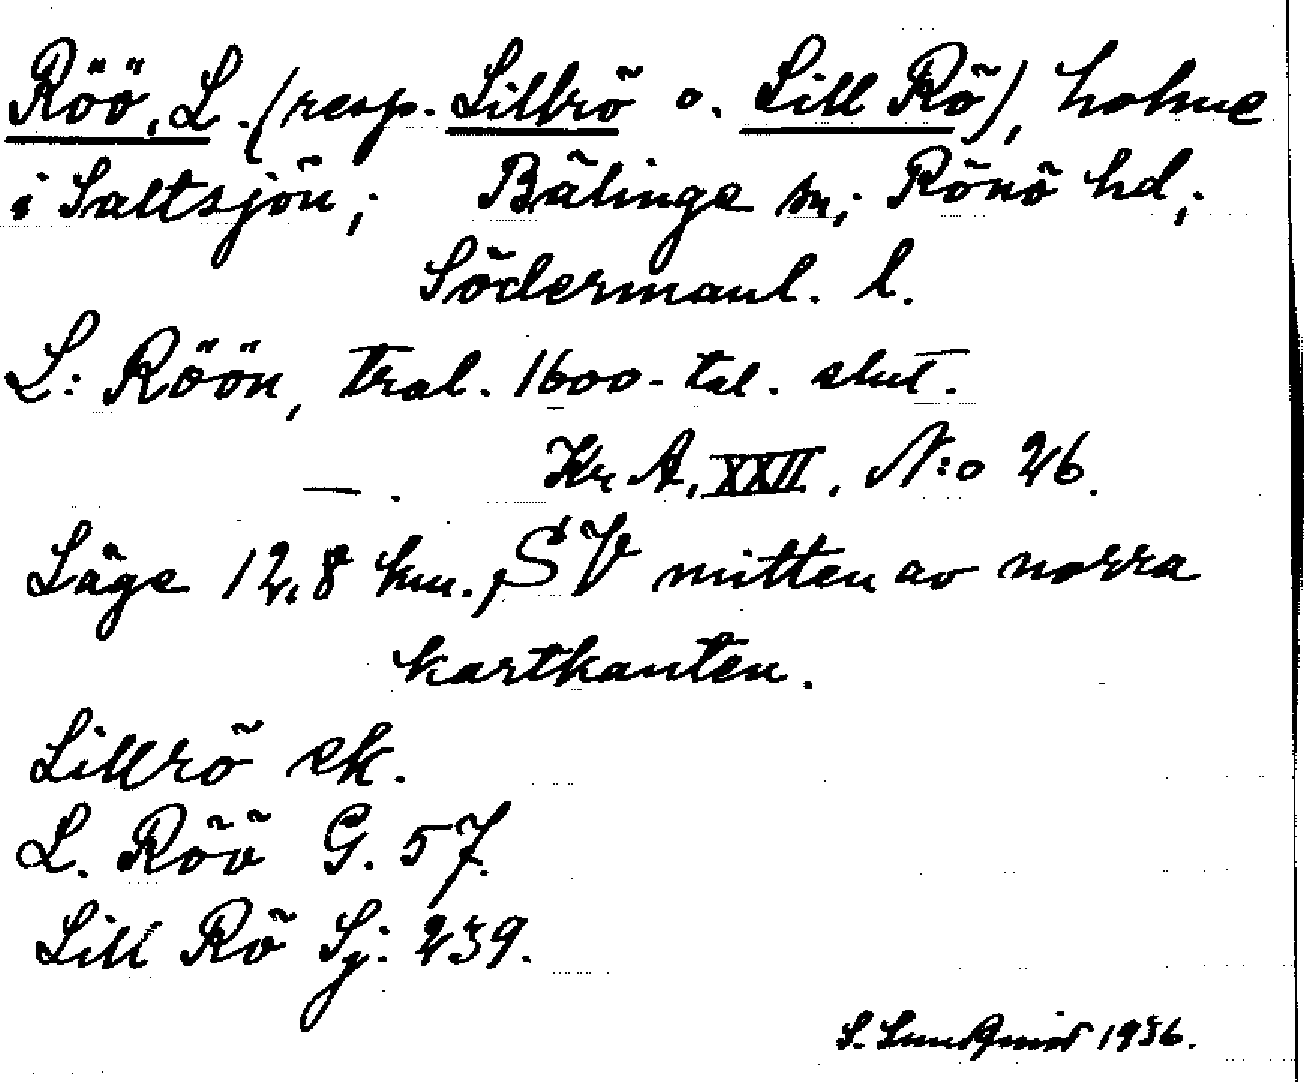 Röö, L. (resp. Lillrö o. Lill Rö), holme
i Saltsjön; Bälinge sn; Rönö hd;
Södermanl. l.
L: Röön, tral. 1600-tal. slut.
—. Kr A, XXII, N:o 26.
Läge 12,8 km., SV mitten av norra
kartkanten.
Lillrö ek.
L. Röö G. 57.
Lill Rö Sj: 239.
S. Lundqvist 1936.